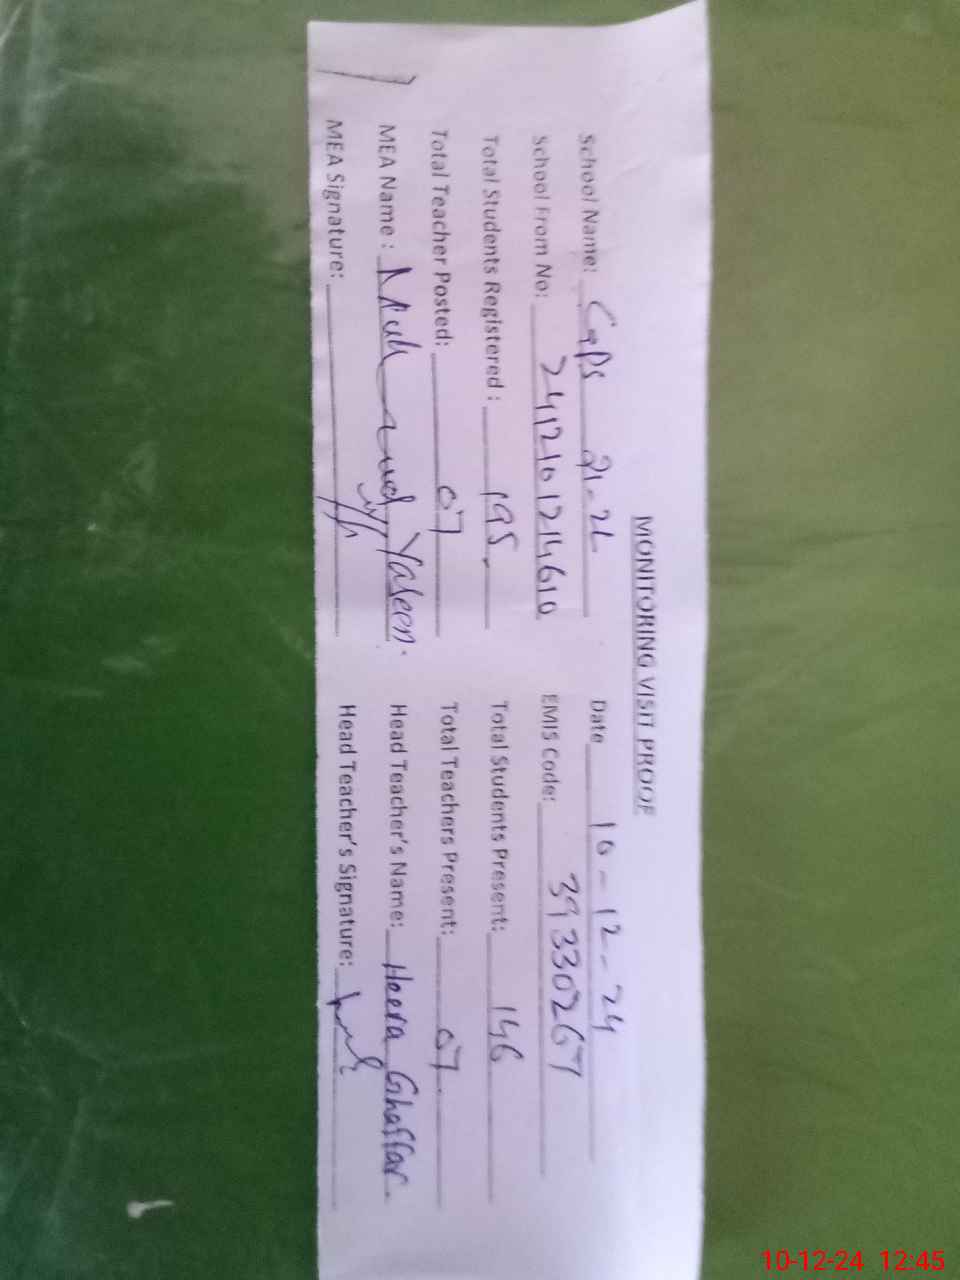 MONITORING VISIT PROOF
School Name: GGPS 21-2L Date 10-12-24
School From No: 2412101214610 EMIS Code: 39330267
Total Students Registered : 195 Total Students Present: 146
Total Teacher Posted: 07 Total Teachers Present: 07
MEA Name : Yaseen. Head Teacher's Name: Heera Ghaffar.
MEA Signature: Head Teacher's Signature:
10-12-24 12:45